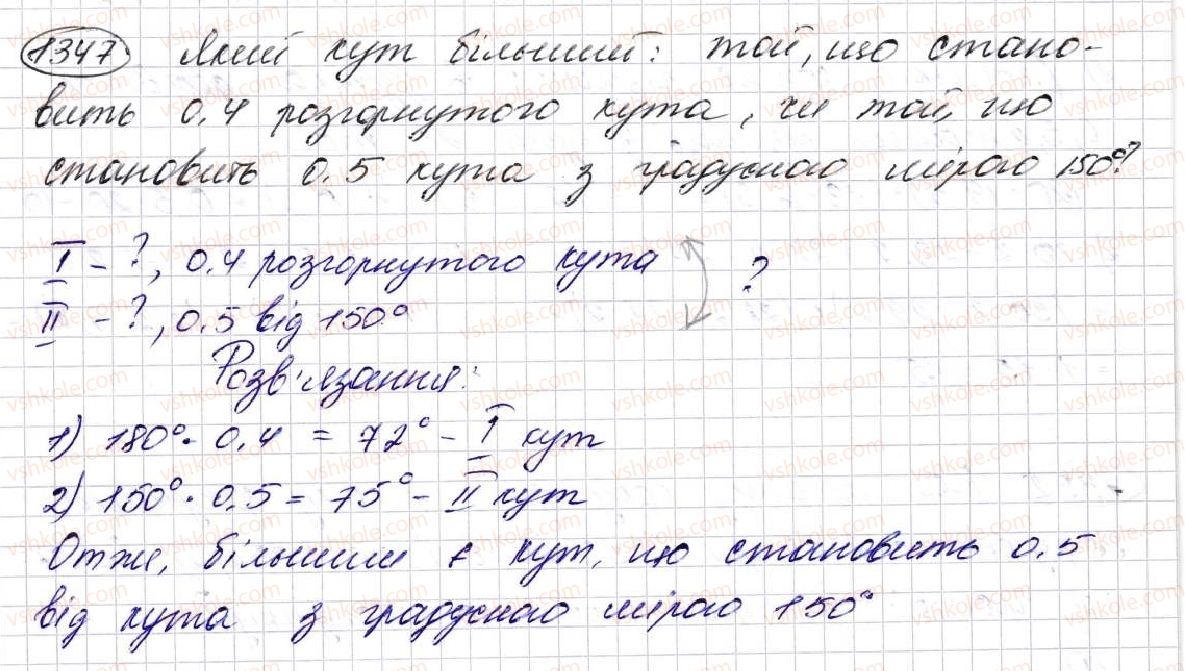 1347 Який кут більший: той, що стано-
вить 0,4 розгорнутого кута, чи той, що
становить 0.5 кута з градусною мірою 150°?
I - ?, 0.4 розгорнутого кута ?
II - ?, 0.5 від 150°
Розв'язання:
1) 180° · 0,4 = 72° - I кут
2) 150° · 0.5 = 75° - II кут
Отже, більшим є кут, що становить 0.5
від кута з градусною мірою 150°